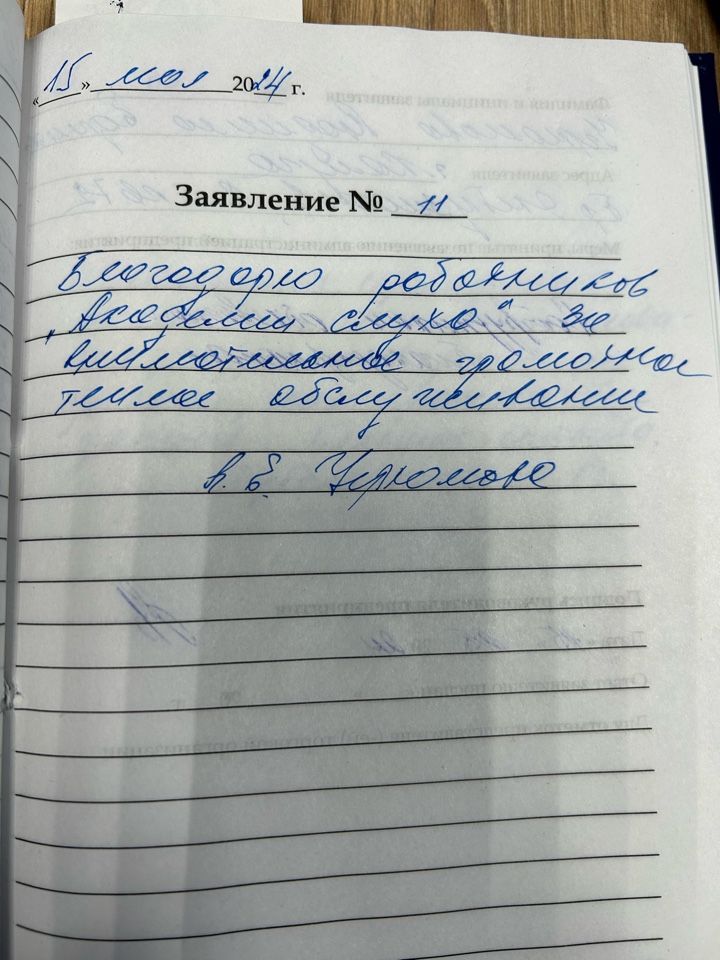 «15» мая 2024 г.
Заявление № 11
Благодарю работников
„Академии слуха" за
внимательное грамотное
теплое обслуживание